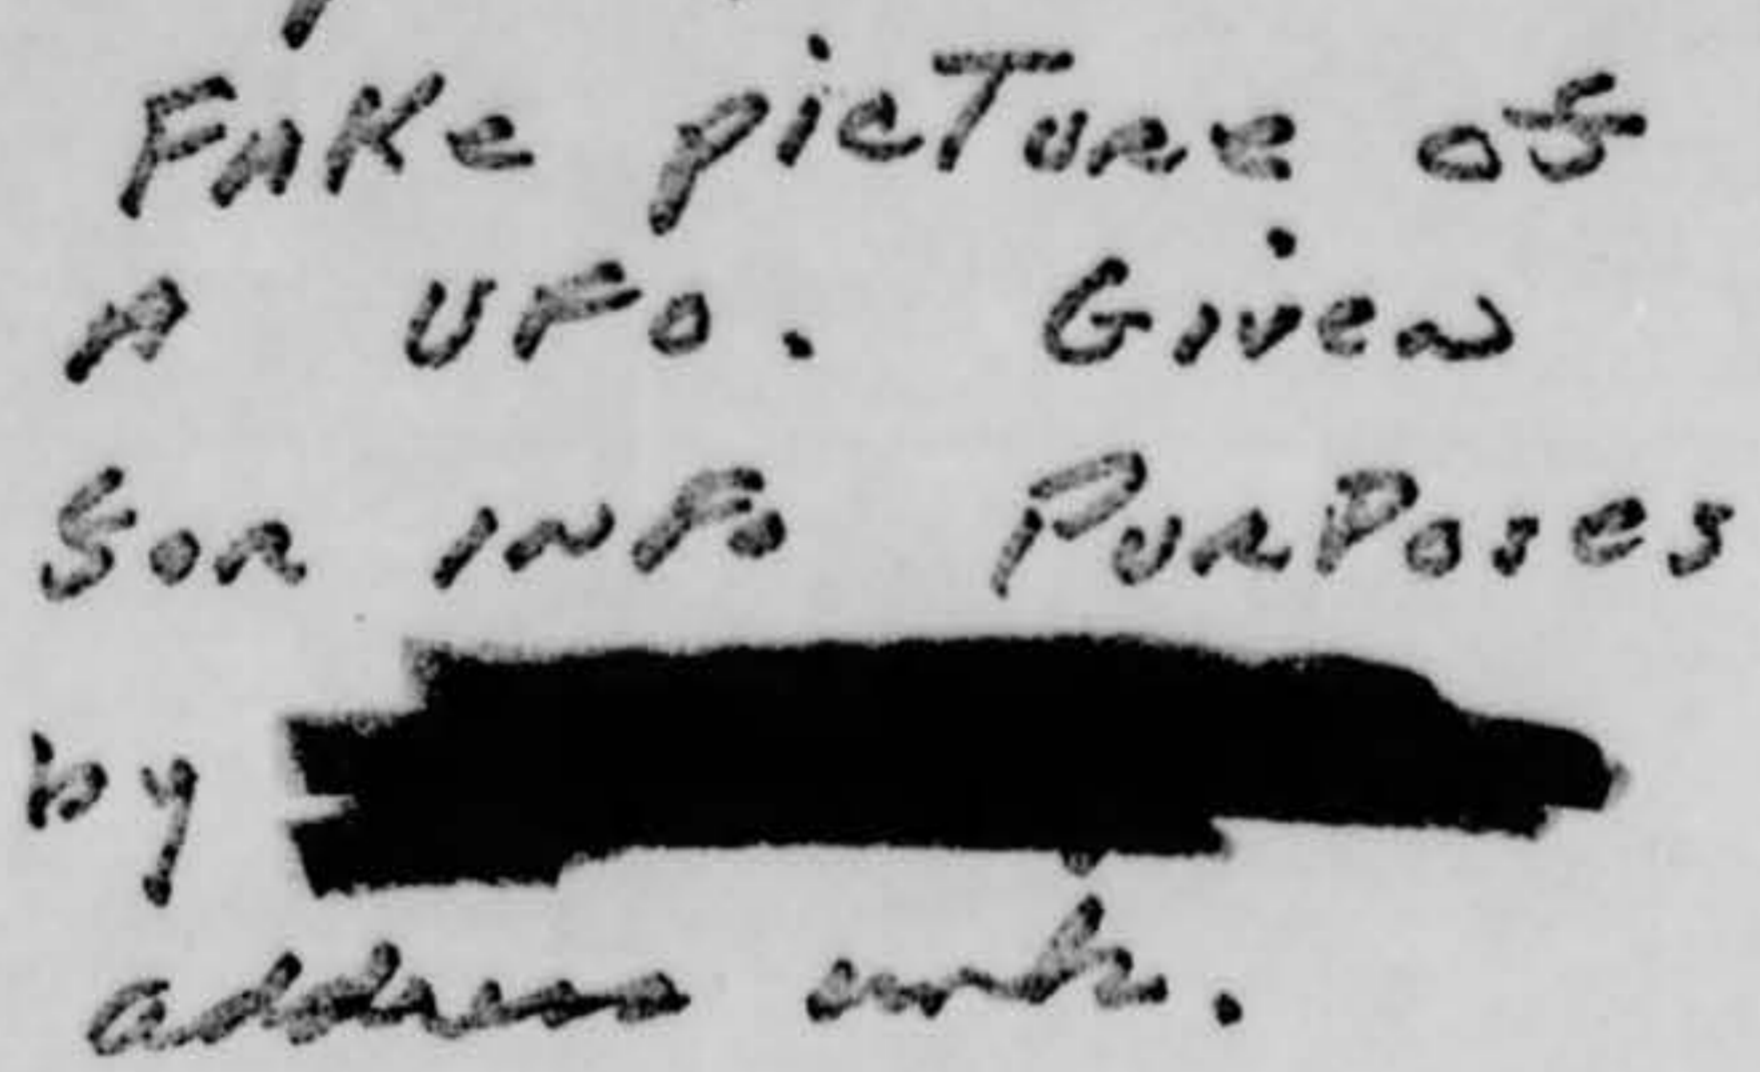 Fake picture of
A UFO. Given
for info Purposes
by
address unk.